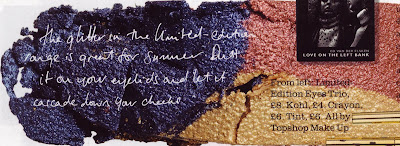 The glitter in the limited-edition
range is great for summer. Dust
it on your eyelids and let it
cascade down your cheeks
ED VAN DER ELSKEN
LOVE ON THE LEFT BANK
From left: Limited
Edition Eyes Trio,
£8. Kohl, £4. Crayon,
£6. Tint, £5. All by
Topshop Make Up